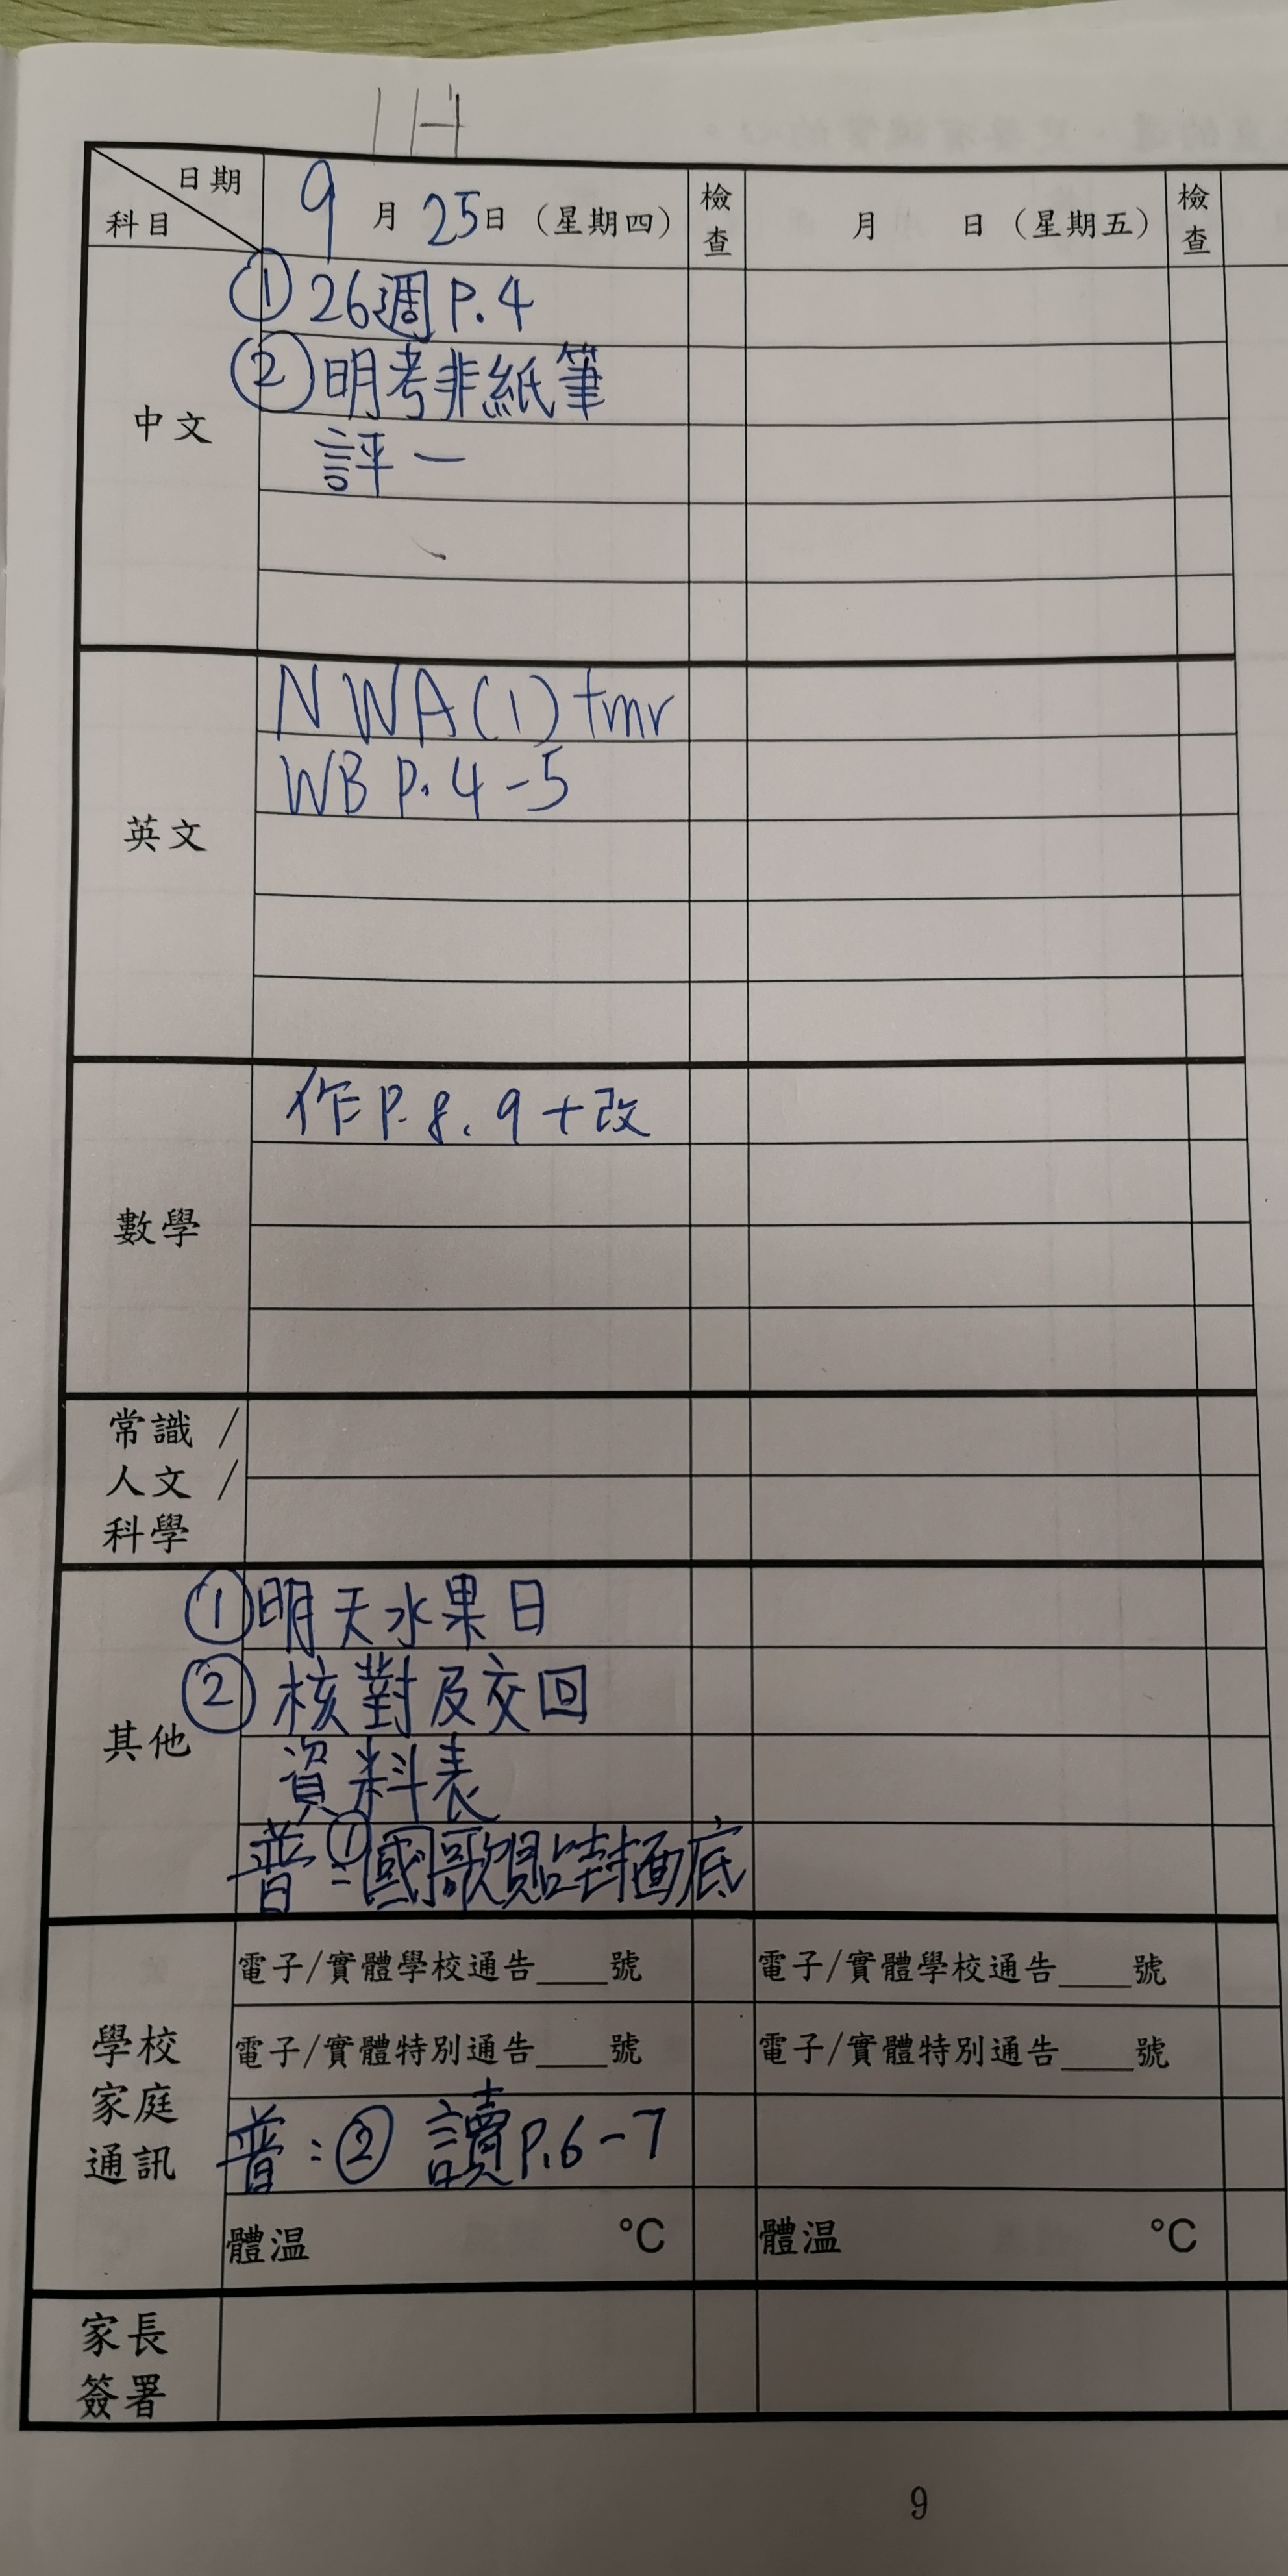 1H
日期
科目
9月25日（星期四）
檢查
月 日（星期五）
檢查
中文
① 26週 P.4
② 明考非紙筆
評一
英文
NWA(1) tmr
WB P.4-5
數學
作P.8、9+改
常識/
人文/
科學
其他
① 明天水果日
② 核對及交回
資料表
普：①國歌貼封面底
學校
家庭
通訊
電子/實體學校通告____號
電子/實體學校通告____號
電子/實體特別通告____號
電子/實體特別通告____號
普：② 讀P.6-7
體温 °C
體温 °C
家長
簽署
9